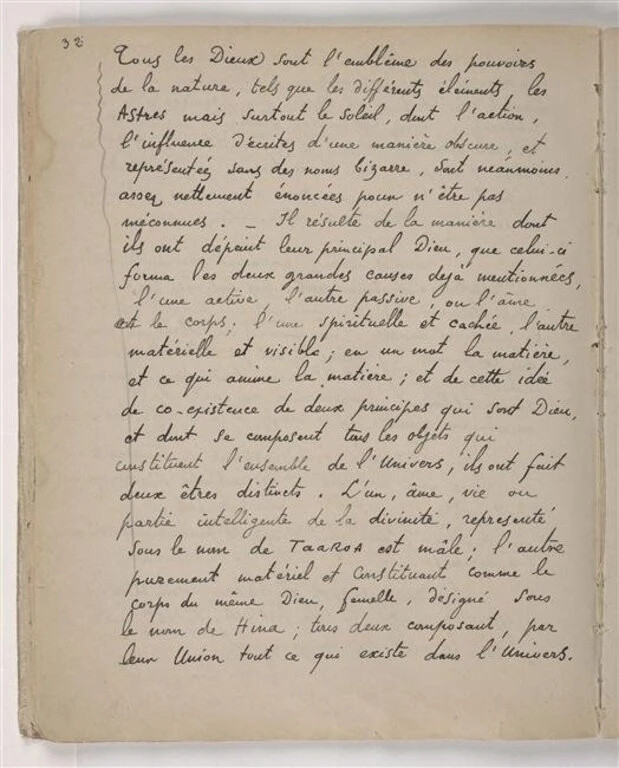 32
Tous les Dieux sont l'emblême des pouvoirs
de la nature, tels que les différents éléments, les
Astres mais surtout le soleil, dont l'action,
l'influence décrites d'une manière obscure, et
représentées sans des noms bizarre, sont néanmoins
assez nettement énoncées pour n'être pas
méconnues. — Il résulte de la manière dont
ils ont dépeint leur principal Dieu, que celui-ci
forma les deux grandes causes dejà mentionnées,
l'une active, l'autre passive, ou l'âme
et le corps; l'une spirituelle et cachée, l'autre
matérielle et visible; en un mot la matière,
et ce qui anime la matière; et de cette idée
de co-existence de deux principes qui sont Dieu,
et dont se composent tous les objets qui
constituent l'ensemble de l'Univers, ils ont fait
deux êtres distincts. L'un, âme, vie ou
partie intelligente de la divinité, representé
sous le nom de TAAROA est mâle; l'autre
purement matériel et constituant comme le
corps du même Dieu, femelle, désigné sous
le nom de Hina; tous deux composant, par
leur Union tout ce qui existe dans l'Univers.